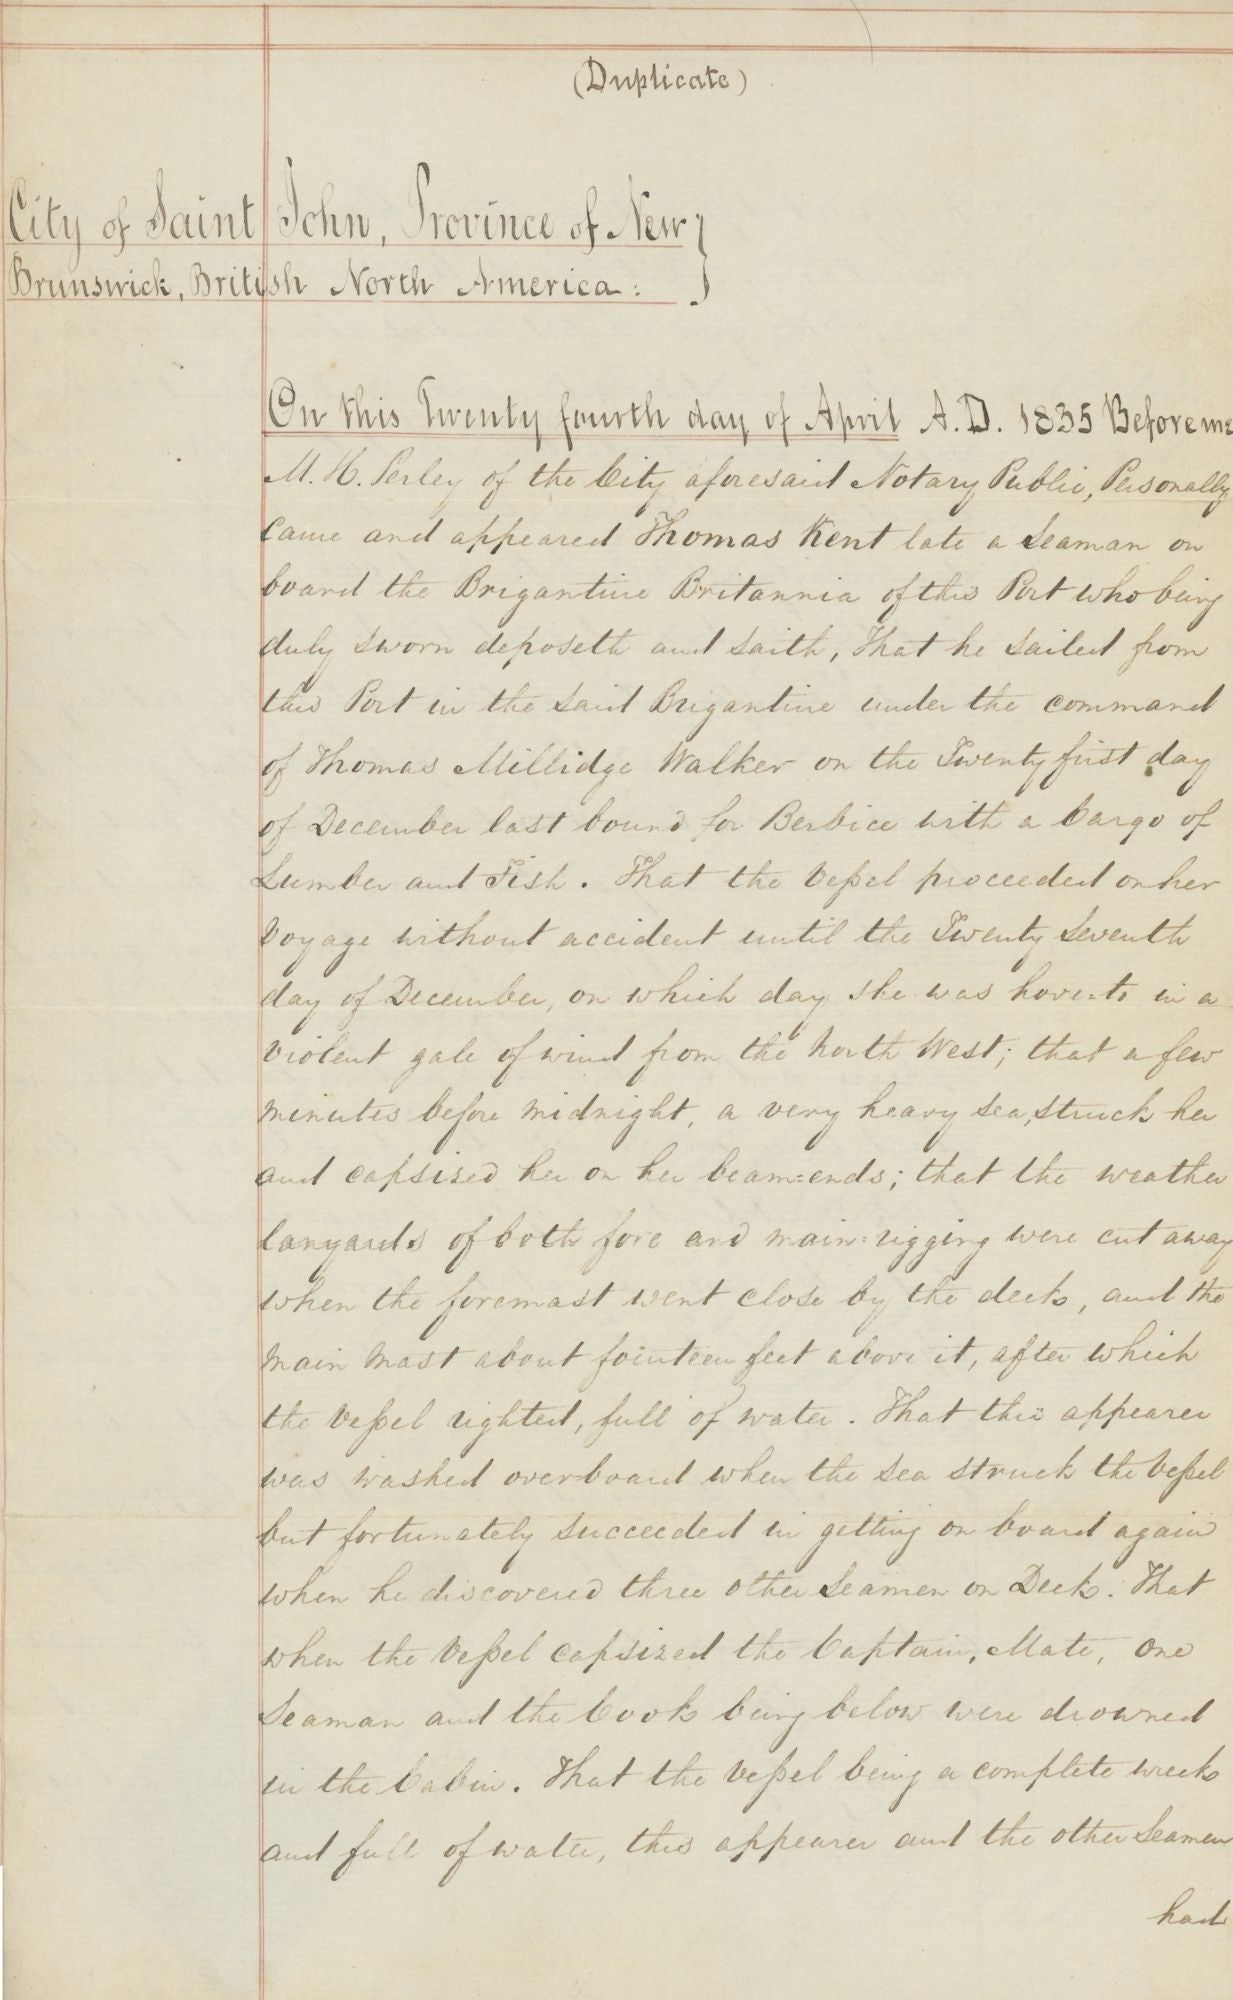 (Duplicate)
City of Saint John, Province of New }
Brunswick, British North America :
On this Twenty fourth day of April A.D. 1835 Before me
M. H. Perley of the City aforesaid Notary Public, Personally
Came and appeared Thomas Kent late a Seaman on
board the Brigantine Britannia of this Port who being
duly sworn deposeth and saith, That he sailed from
this Port in the said Brigantine under the command
of Thomas Millidge Walker on the Twenty first day
of December last bound for Berbice with a Cargo of
Lumber and Fish. That the Veßel proceeded on her
Voyage without accident until the Twenty Seventh
day of December, on which day she was hove=to in a
violent gale of wind from the North West; that a few
minutes before midnight, a very heavy sea, struck her
and capsized her on her beam=ends; that the weather
lanyards of both fore and main=rigging were cut away
when the foremast went close by the deck, and the
main mast about fourteen feet above it, after which
the Veßel righted, full of water. That this appearer
was washed overboard when the sea struck the Veßel
but fortunately succeeded in getting on board again
when he discovered three other Seamen on Deck: That
when the Veßel capsized the Captain, Mate, one
Seaman and the Cook being below were drowned
in the Cabin. That the Veßel being a complete wreck
and full of water, this appearer and the other Seamen
had